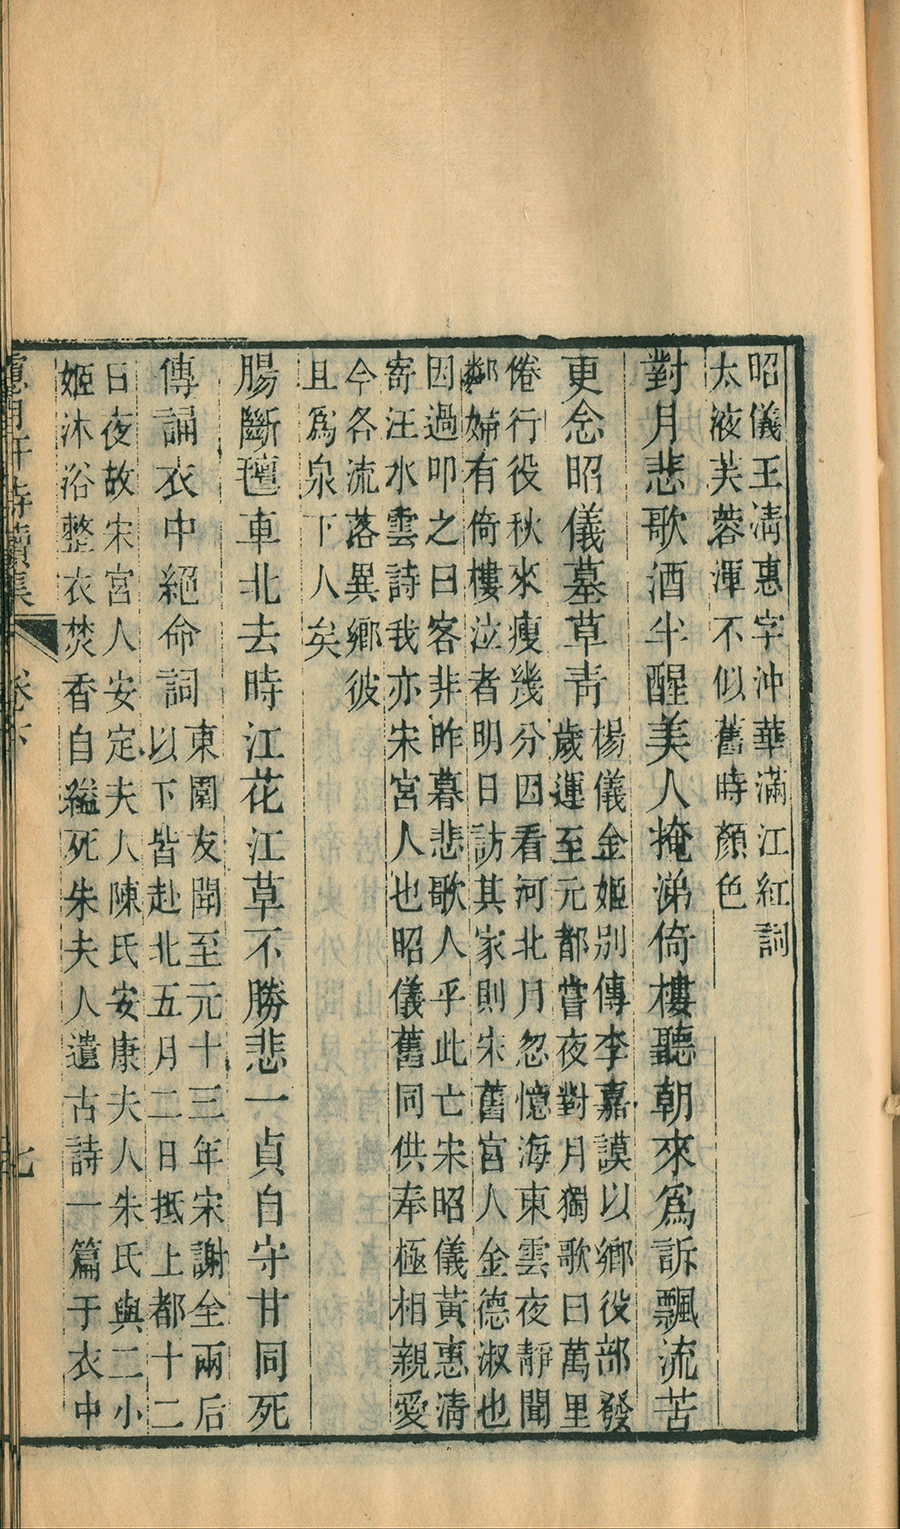 昭儀王淸惠字沖華滿江紅詞
太液芙蓉渾不似舊時顏色
對月悲歌酒半醒美人掩涕倚樓聽朝來爲訴飄流苦
更念昭儀墓草靑
楊儀金姬别傳李嘉謨以鄉役部發
歲運至元都嘗夜對月獨歌曰萬里
倦行役秋來瘦幾分因看河北月忽憶海東雲夜靜聞
鄰婦有倚樓泣者明日訪其家則宋舊宮人金德淑也
因過叩之曰客非昨暮悲歌人乎此亡宋昭儀黃惠淸
寄汪水雲詩我亦宋宮人也昭儀舊同供奉極相親愛
今各流落異鄉彼
且爲泉下人矣
腸斷氊車北去時江花江草不勝悲一貞自守甘同死
傳誦衣中絕命詞
東園友聞至元十三年宋謝全兩后
以下皆赴北五月二日抵上都十二
日夜故宋宮人安定夫人陳氏安康夫人朱氏與二小
姬沐浴整衣焚香自縊死朱夫人遺古詩一篇于衣中
詩續集
卷下
七